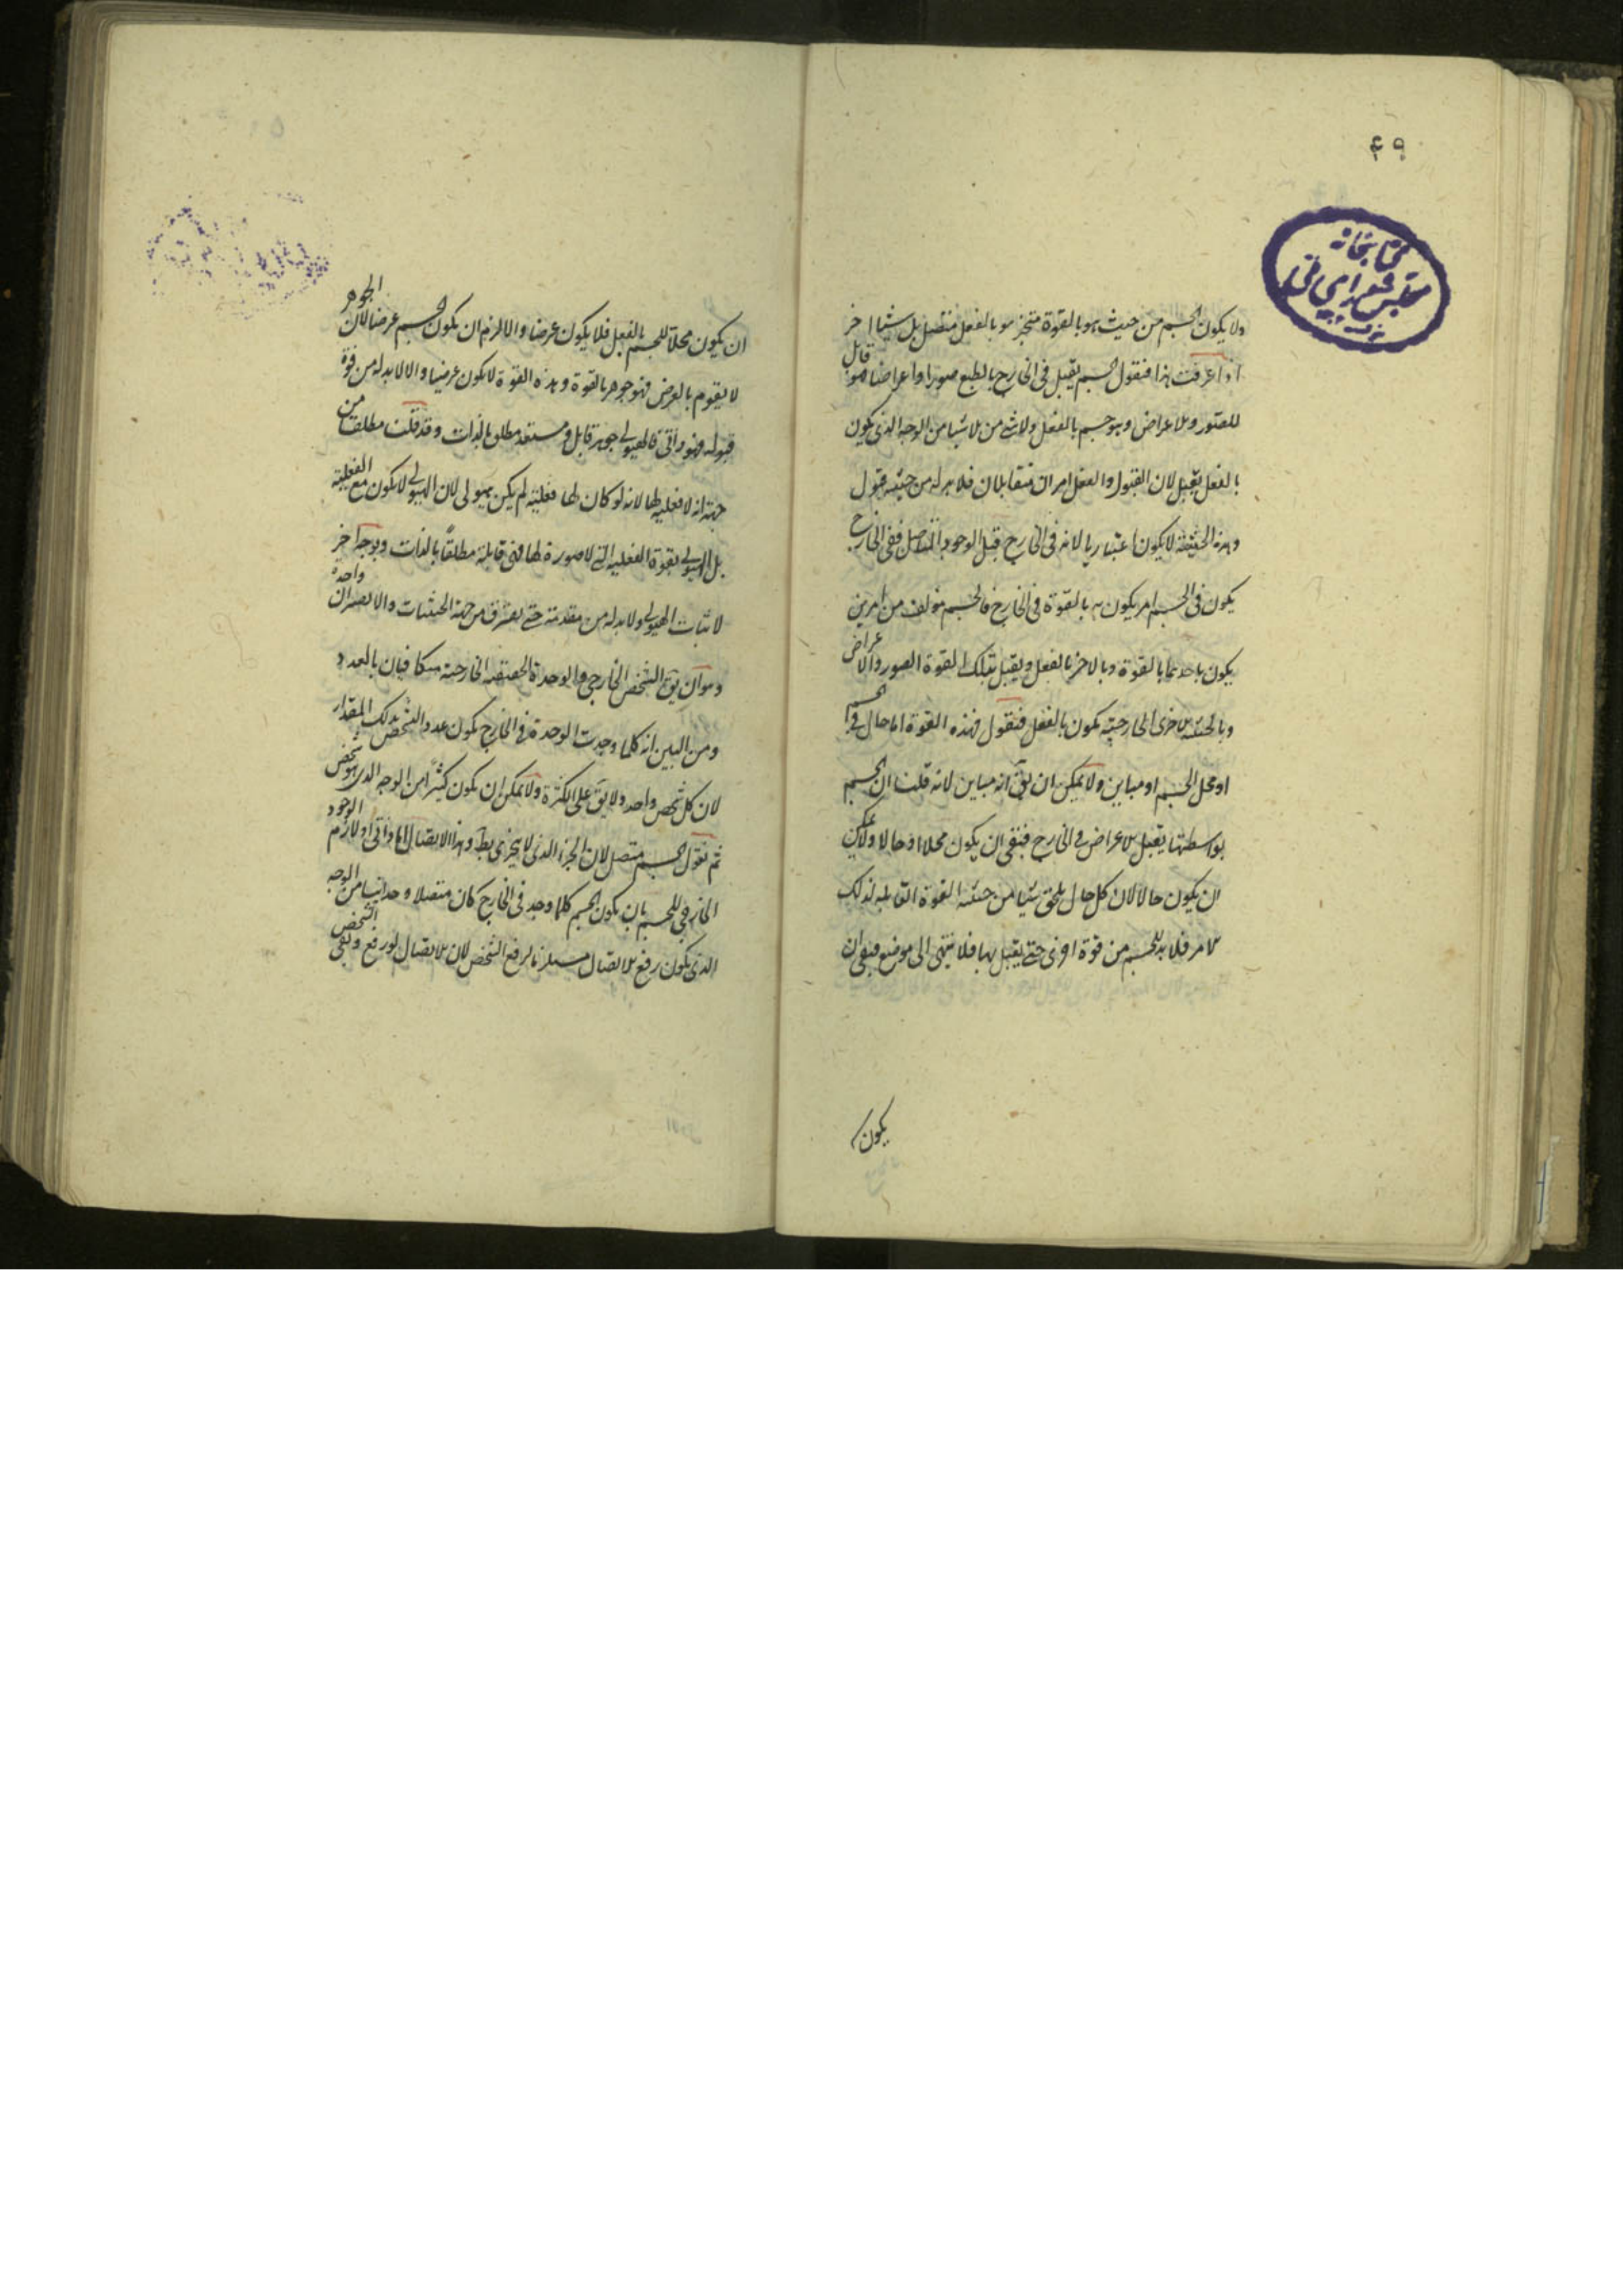 ۴۹
كتابخانه
مجلس شورای ملی
ولا يكون الجسم من حيث هو بالقوة متجز هو بالفعل متصل بل شيئا اخر
اذا عرفت هذا فنقول الجسم يقبل فى الخارج بالطبع صورا واعراضا فهو قابل
للصور والاعراض وهو جسم بالفعل ولا شئ من الاشيا من الوجه الذى يكون
بالفعل يقبل لان القبول والفعل امران متقابلان فلا بد له من حيثية قبول
وهذه الحيثية لا يكون اعتباريا لانه فى الخارج قبل الوجود ففى الخارج
يكون فى الجسم امر يكون به بالقوة فى الخارج فالجسم مؤلف من امرين
يكون باحدهما بالقوة وبالاخر بالفعل ويقبل بتلك القوة الصور والاعراض
وبالحيثية الاخرى الخارجية يكون بالفعل فنقول فهذه القوة اما حال فى الجسم
او محل الجسم او مباين ولا يمكن ان يق انه مباين لانه قلت ان الجسم
بواسطتها يقبل الاعراض فى الخارج فبقى ان يكون محلا او حالا ولا يمكن
ان يكون حالا لان كل حال يلحق شيئا من حيثية القوة القابلة لذلك
الامر فلا بد للجسم من قوة اخرى حتى يقبل بها فلا ينتهى الى موضع فبقى ان
يكون
ان يكون محلا للجسم بالفعل فلا يكون عرضا والا لزم ان يكون الجسم عرضا لان الجوهر
لا يقوم بالعرض فهو جوهر بالقوة وهذه القوة لا يكون عرضيا والا لا بد له من قوة
قبوله فهو ذاتى فالهيولى جوهر قابل ومستعد مطلق بالذات وقد قلت مطلقا من
جهة انه لا فعلية لها لانه لو كان لها فعلية لم يكن هيولى لان الهيولى لا يكون مع الفعلية
بل الهيولى بقوة الفعلية التى لا صورة لها فهى قابلة مطلقاً بالذات وبوجه اخر
لاثبات الهيولى ولا بد له من مقدمة حتى يفترق من جهة الحيثيات والا يصيران واحدة
وهو ان يق التشخص الخارجى والوحدة الحقيقية الخارجية متكافيان بالعدد
ومن البين انه كلما وجدت الوحدة فى الخارج يكون عدد التشخص بذلك المقدار
لان كل شخص واحد ولا يق على الكثرة ولا يمكن ان يكون كثيرًا من الوجه الذى هو شخص
ثم نقول الجسم متصل لان الجزء الذى لا يتجزى بط وهذا الاتصال اما ذاتى او لازم الوجود
الخارجى للجسم بان يكون الجسم كلما وجد فى الخارج كان متصلا وحدانيا من الوجه
الذى يكون رفع الاتصال مستلزما لرفع الشخص لان الاتصال لو رفع وبقى الشخص